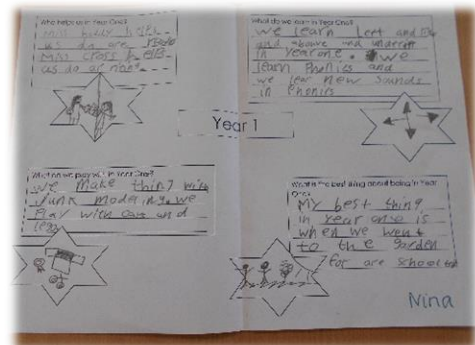 Who helps us in Year One?
Miss Billy helps
us do are
Miss Cross helps
us do ar
What do we learn in Year One?
we learn left and
and above and
in Year one. we
learn Phonics and
we lear new sounds
in Phonics
Year 1
What do we play with in Year One?
We make thing with
Junk modeling. we
Play with and
lego
What is the best thing about being in Year
One?
My best thing
in Year one is
when we went
to the garden
for are school
Nina